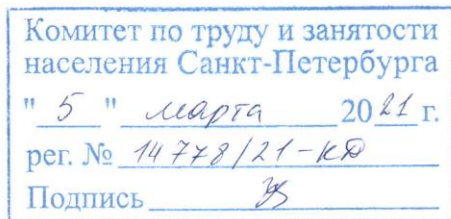 Комитет по труду и занятости
населения Санкт-Петербурга
"5" марта 2021 г.
рег. № 14778/21-КД
Подпись